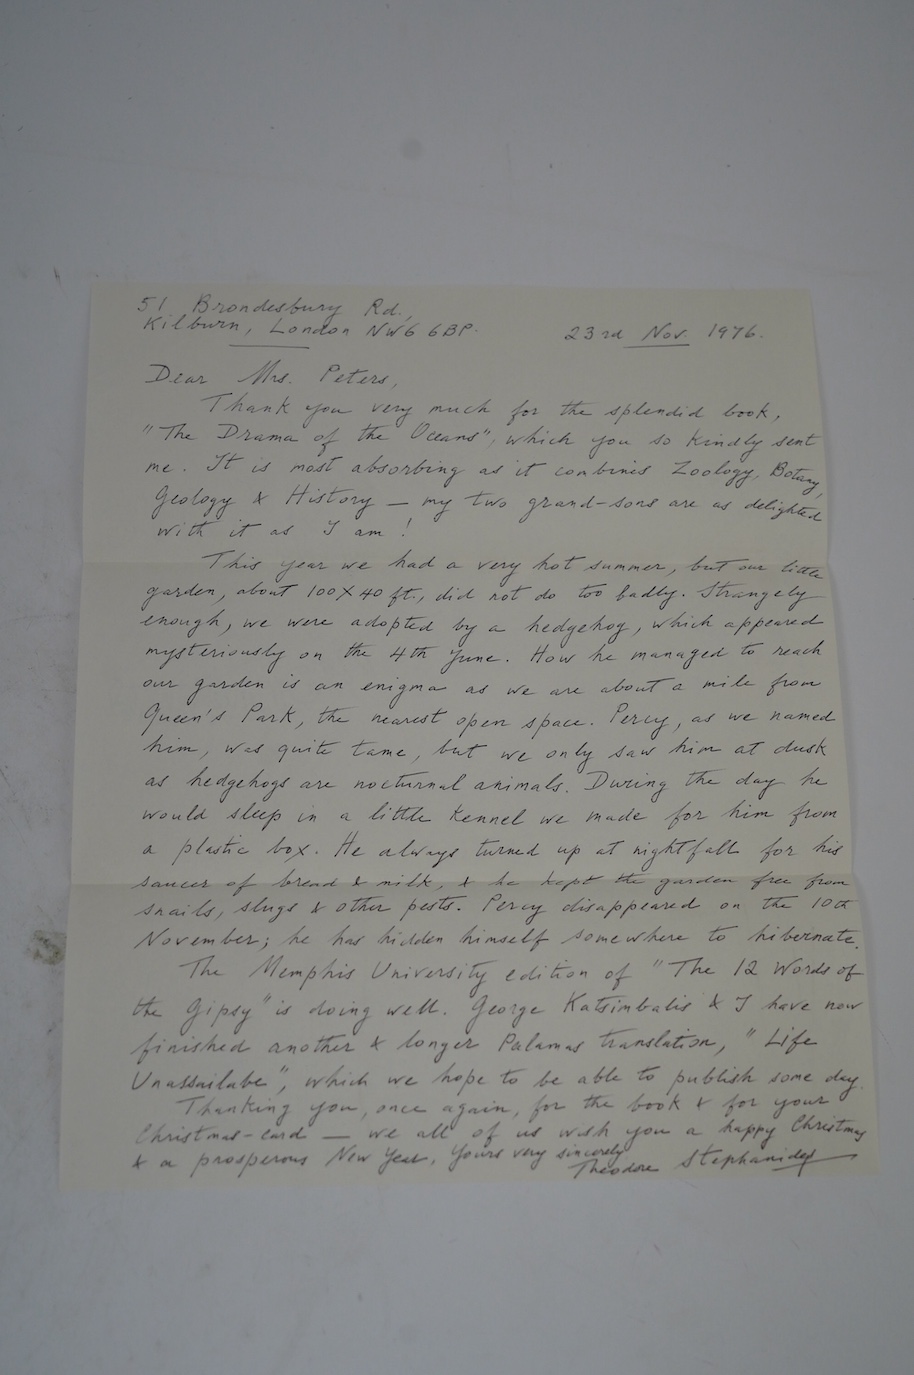 51 Brondesbury Rd,
Kilburn, London NW6 6BP.
23rd Nov. 1976.
Dear Mrs. Peters,
Thank you very much for the splendid book,
"The Drama of the Oceans", which you so kindly sent
me. It is most absorbing as it combines Zoology, Botany,
Geology & History — my two grand-sons are as delighted
with it as I am!
This year we had a very hot summer, but our little
garden, about 100 X 40 ft., did not do too badly. Strangely
enough, we were adopted by a hedgehog, which appeared
mysteriously on the 4th June. How he managed to reach
our garden is an enigma as we are about a mile from
Queen's Park, the nearest open space. Percy, as we named
him, was quite tame, but we only saw him at dusk
as hedgehogs are nocturnal animals. During the day he
would sleep in a little kennel we made for him from
a plastic box. He always turned up at nightfall for his
saucer of bread & milk, & he kept the garden free from
snails, slugs & other pests. Percy disappeared on the 10th
November; he has hidden himself somewhere to hibernate.
The Memphis University edition of "The 12 Words of
the Gipsy" is doing well. George Katsimbalis & I have now
finished another & longer Palamas translation, "Life
Unassailabe", which we hope to be able to publish some day.
Thanking you, once again, for the book & for your
Christmas-card — we all of us wish you a happy Christmas
& a prosperous New Year. Yours very sincerely
Theodore Stephanides